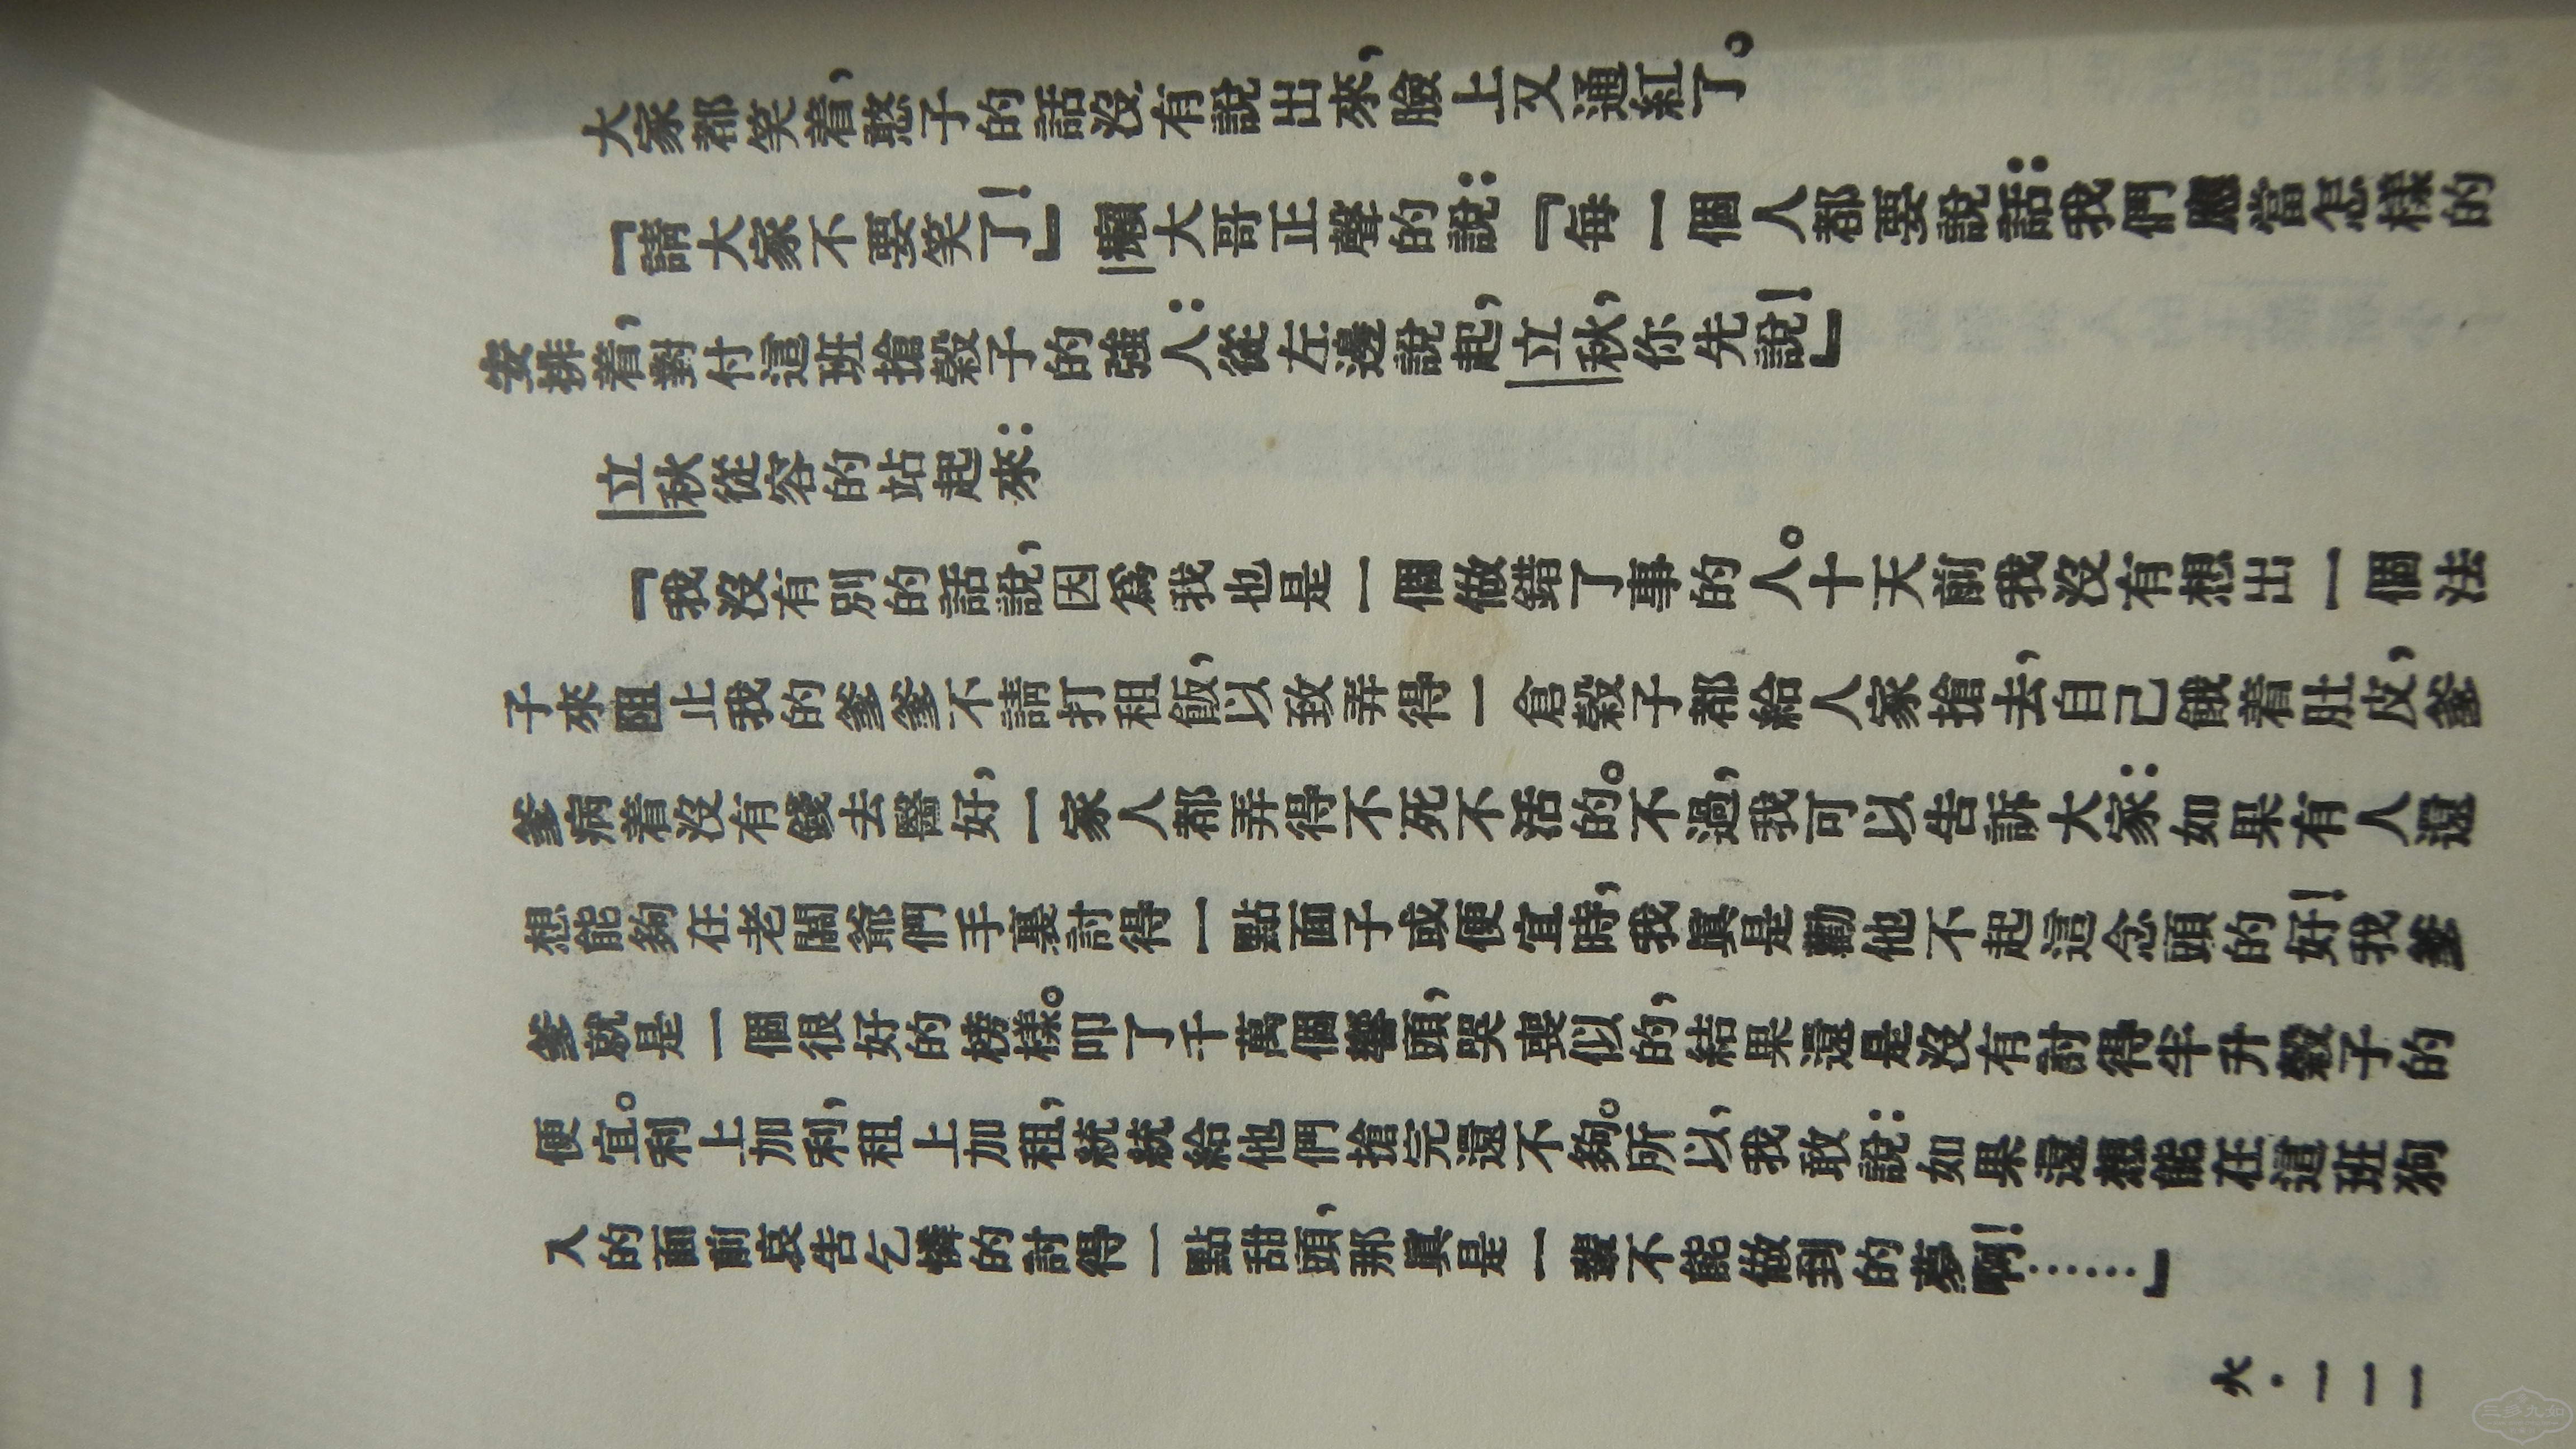 大家都笑着，憨子的話沒有說出來，臉上又通紅了。
『請大家不要笑了！』癩大哥正聲的說：『每一個人都要說話：我們應當怎樣的
安排着，對付這班搶穀子的強人：從左邊說起，立秋，你先說！』
立秋從容的站起來：
『我沒有別的話說，因爲我也是一個做錯了事的人。十天前我沒有想出一個法
子來阻止我的爹爹不請打租飯，以致弄得一倉穀子都給人家搶去，自己餓着肚皮，爹
爹病着沒有錢去醫好，一家人都弄得不死不活的。不過，我可以告訴大家：如果有人還
想能夠在老闆爺們手裏討得一點面子或便宜時，我眞是勸他不起這念頭的好！我爹
爹就是一個很好的榜樣。叩了千萬個響頭，哭喪似的，結果還是沒有討得半升穀子的
便宜。利上加利，租上加租，統統給他們搶完還不夠。所以，我敢說：如果還想能在這班狗
入的面前哀告乞憐的討得一點甜頭，那眞是一輩不能做到的夢啊！……』
火·一一一
三多九如